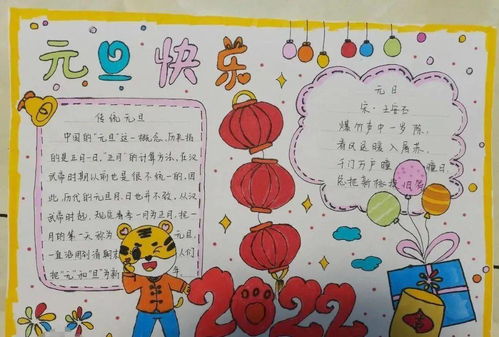 元旦快乐
传统元旦
中国的“元旦”这一概念，历来指
的是正月一日。“正月”的计算方法，在汉
武帝时期以前也是很不统一的。因
此，历代的元旦月、日也并不一致。从汉
武帝时起，规定春季一月为正月，把一
月的第一天称为元旦，
一直沿用到清朝末人们
把“元”和“旦”为新年。
元日
宋·王安石
爆竹声中一岁除，
春风送暖入屠苏。
千门万户曈曈日
总把新桃换旧符
2022